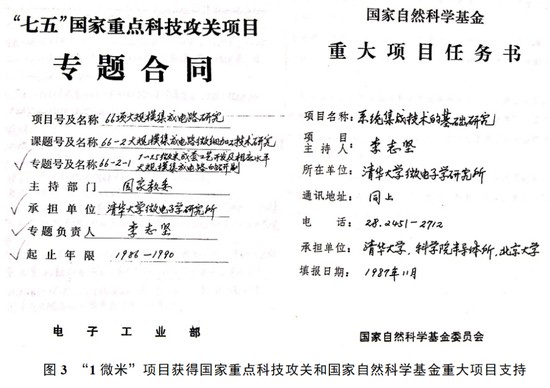 “七五”国家重点科技攻关项目
专题合同
项目号及名称 66项大规模集成电路研究
课题号及名称 66-2大规模集成电路微细加工技术研究
专题号及名称 66-2-1 1-1.5微米成套工艺开发及相应水平
大规模集成电路的研制
主持部门 国家教委
承担单位 清华大学微电子学研究所
专题负责人 李志坚
起止年限 1986-1990
电子工业部
国家自然科学基金
重大项目任务书
项目名称: 系统集成技术的基础研究
项目
主持人: 李志坚
所在单位: 清华大学微电子学研究所
通讯地址: 同上
电话: 28.2451-2712
承担单位: 清华大学、科学院半导体所、北京大学
填报日期: 1987年11月
国家自然科学基金委员会
图3 “1微米”项目获得国家重点科技攻关和国家自然科学基金重大项目支持